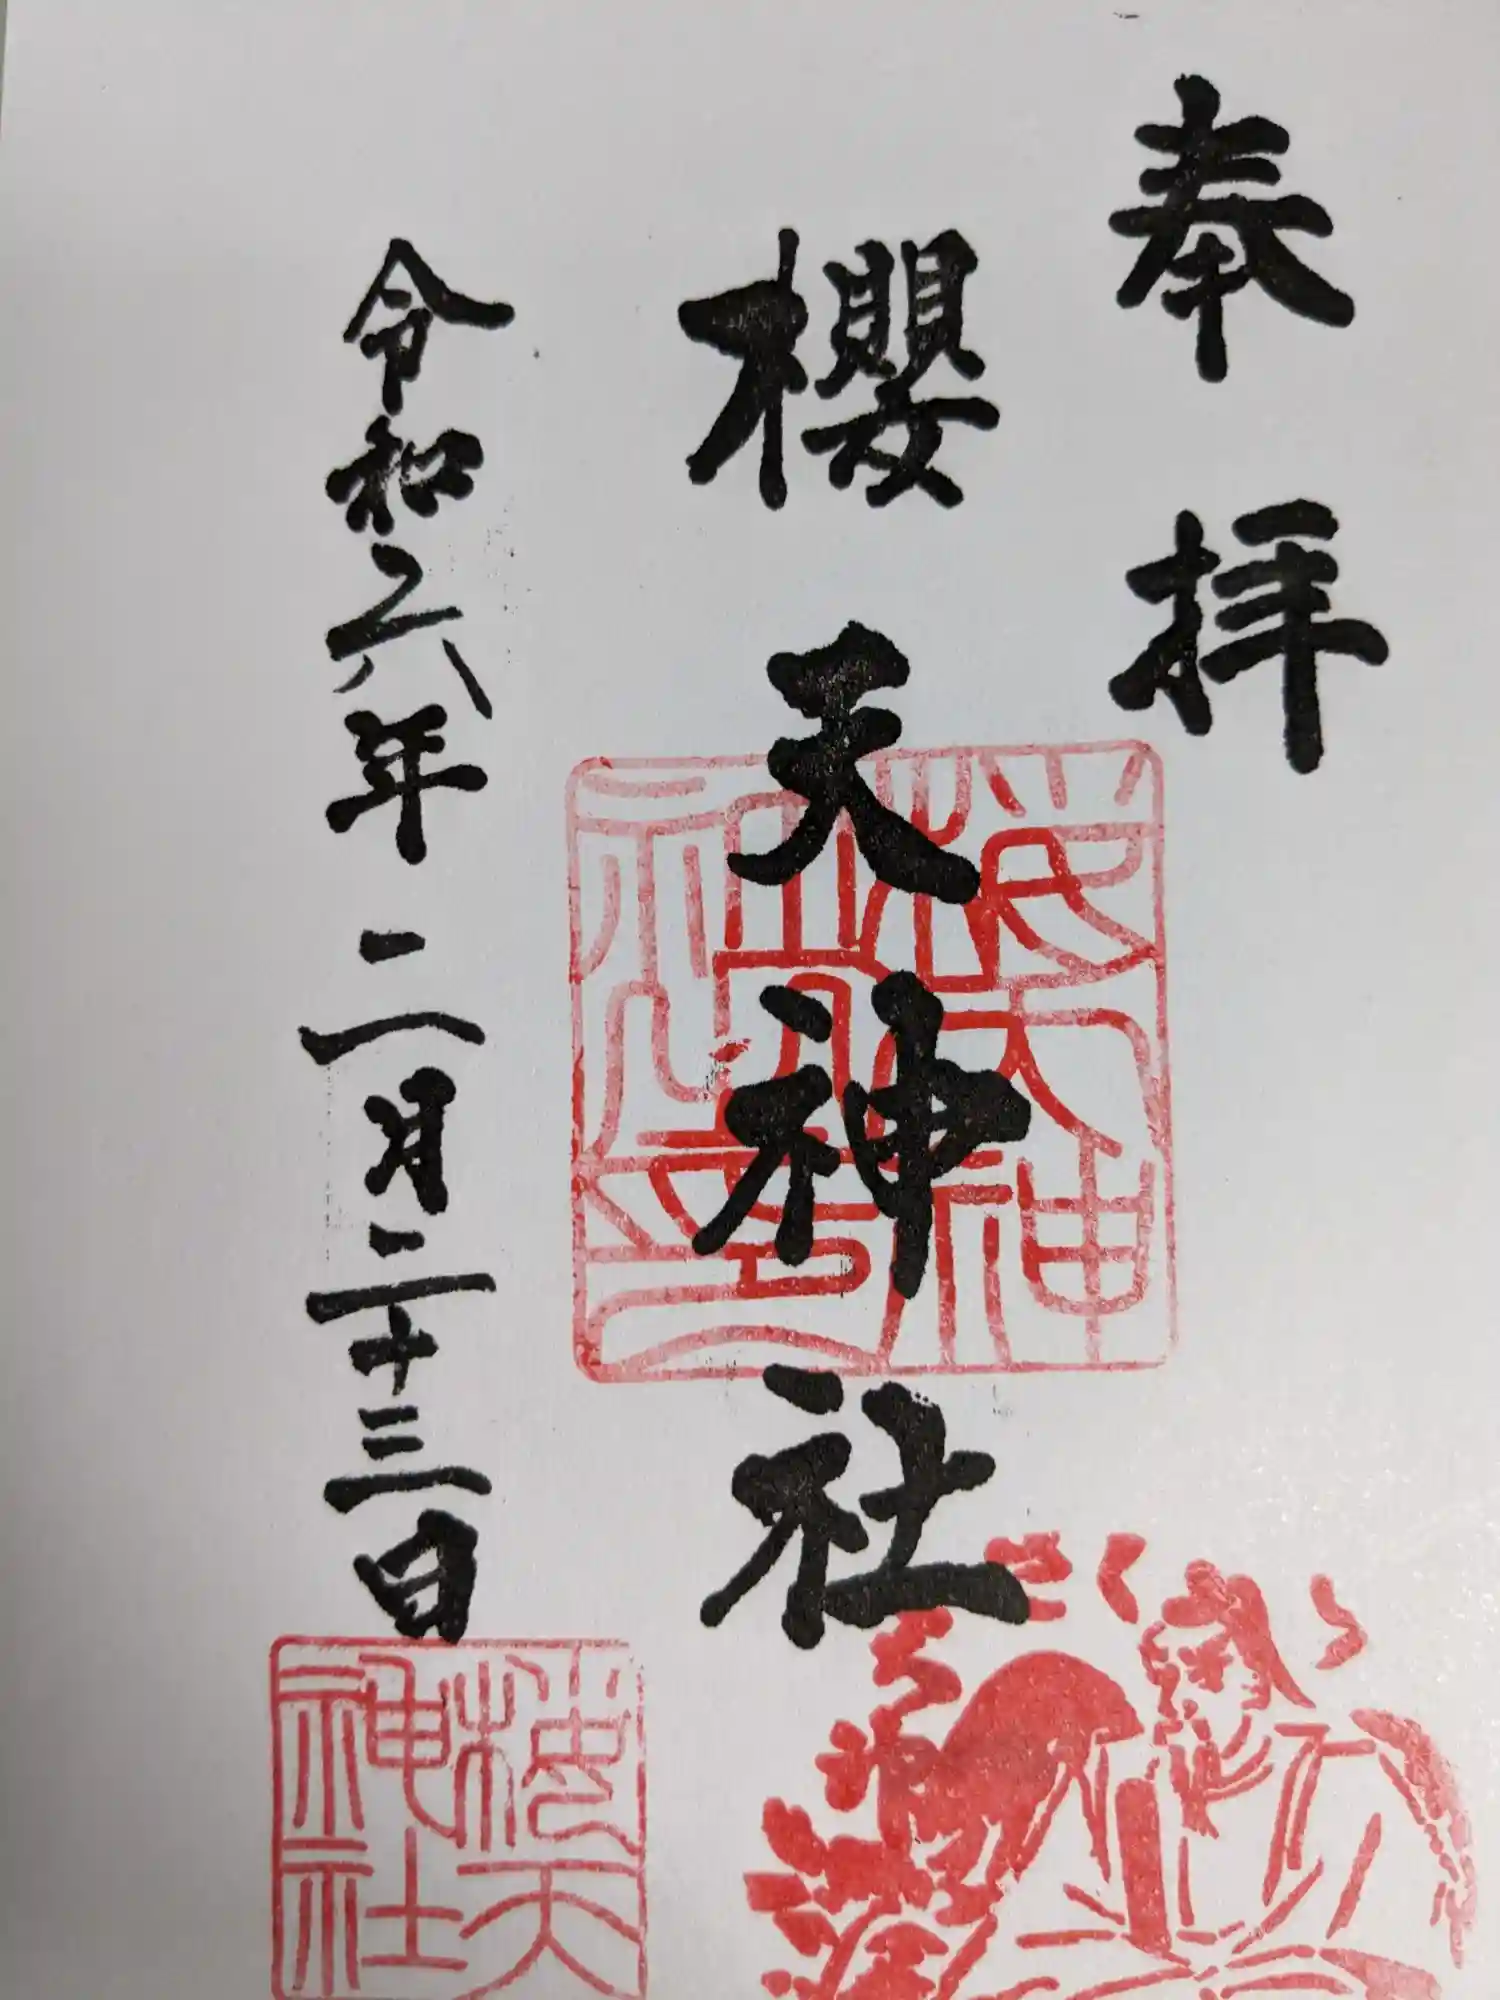 奉拝
櫻天神社
令和六年二月二十三日
桜天神社之印
桜天神社